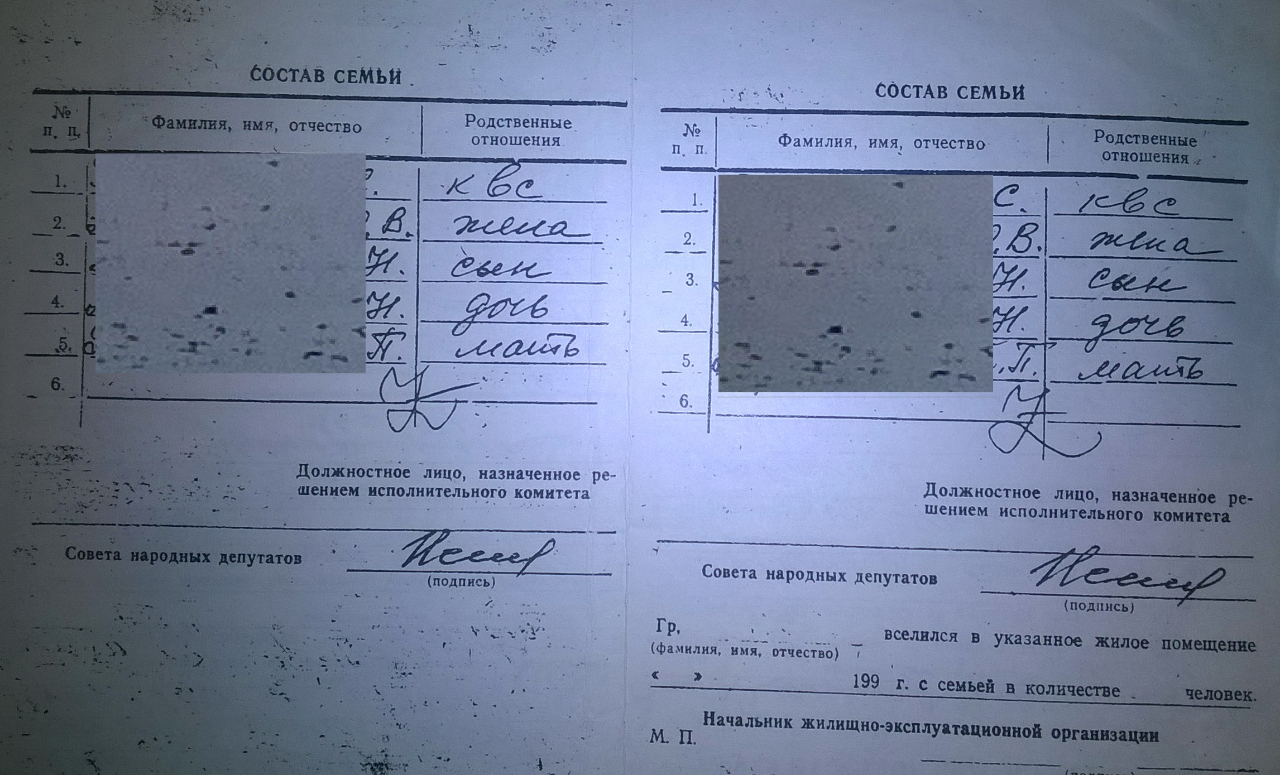 СОСТАВ СЕМЬИ
№ п. п. Фамилия, имя, отчество Родственные отношения
1. квс
2. В. жена
3. Н. сын
4. Н. дочь
5. П. мать
6.
Должностное лицо, назначенное ре-
шением исполнительного комитета
Совета народных депутатов
(подпись)
СОСТАВ СЕМЬИ
№ п. п. Фамилия, имя, отчество Родственные отношения
1. С. квс
2. В. жена
3. Н. сын
4. Н. дочь
5. П. мать
6.
Должностное лицо, назначенное ре-
шением исполнительного комитета
Совета народных депутатов
(подпись)
Гр, вселился в указанное жилое помещение
(фамилия, имя, отчество)
« » 199 г. с семьей в количестве человек.
Начальник жилищно-эксплуатационной организации
М. П.